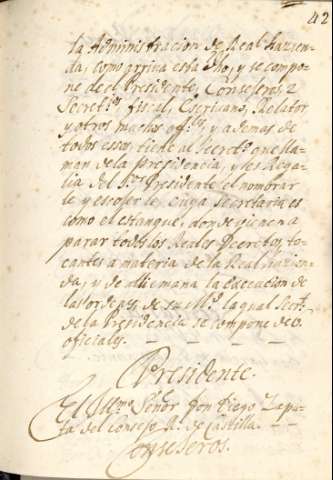 42
la Administracion de Real Hazien-
da, como arriva esta dho, y se compo-
ne de el Presidente, Consejeros, 2
Secret.os fiscal, Escrivano, Relator
y otros muchos of.les, y ademas de
todos esso, tiene al Secret.o que lla-
man de la presidencia, y es Rega-
lia del S.or Presidente el nombrar
le y escojer le, cuya secretaria es
como el estanque, donde vienen a
parar todos los Reales Decretos, to-
cantes a materia de la Real Hazien-
da, y de alli emana la execucion de
las ordenes de su M.d la qual Secret.a
de la Presidencia se compone de
oficiales.
Presidente.
El Ill.mo Señor Don Diego Zapa-
ta del Consejo R.l de Castilla.
Consejeros.